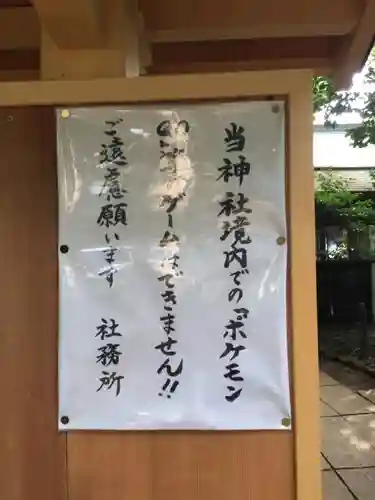 当神社境内での『ポケモン
GO』のゲームはできません!!
ご遠慮願います 社務所